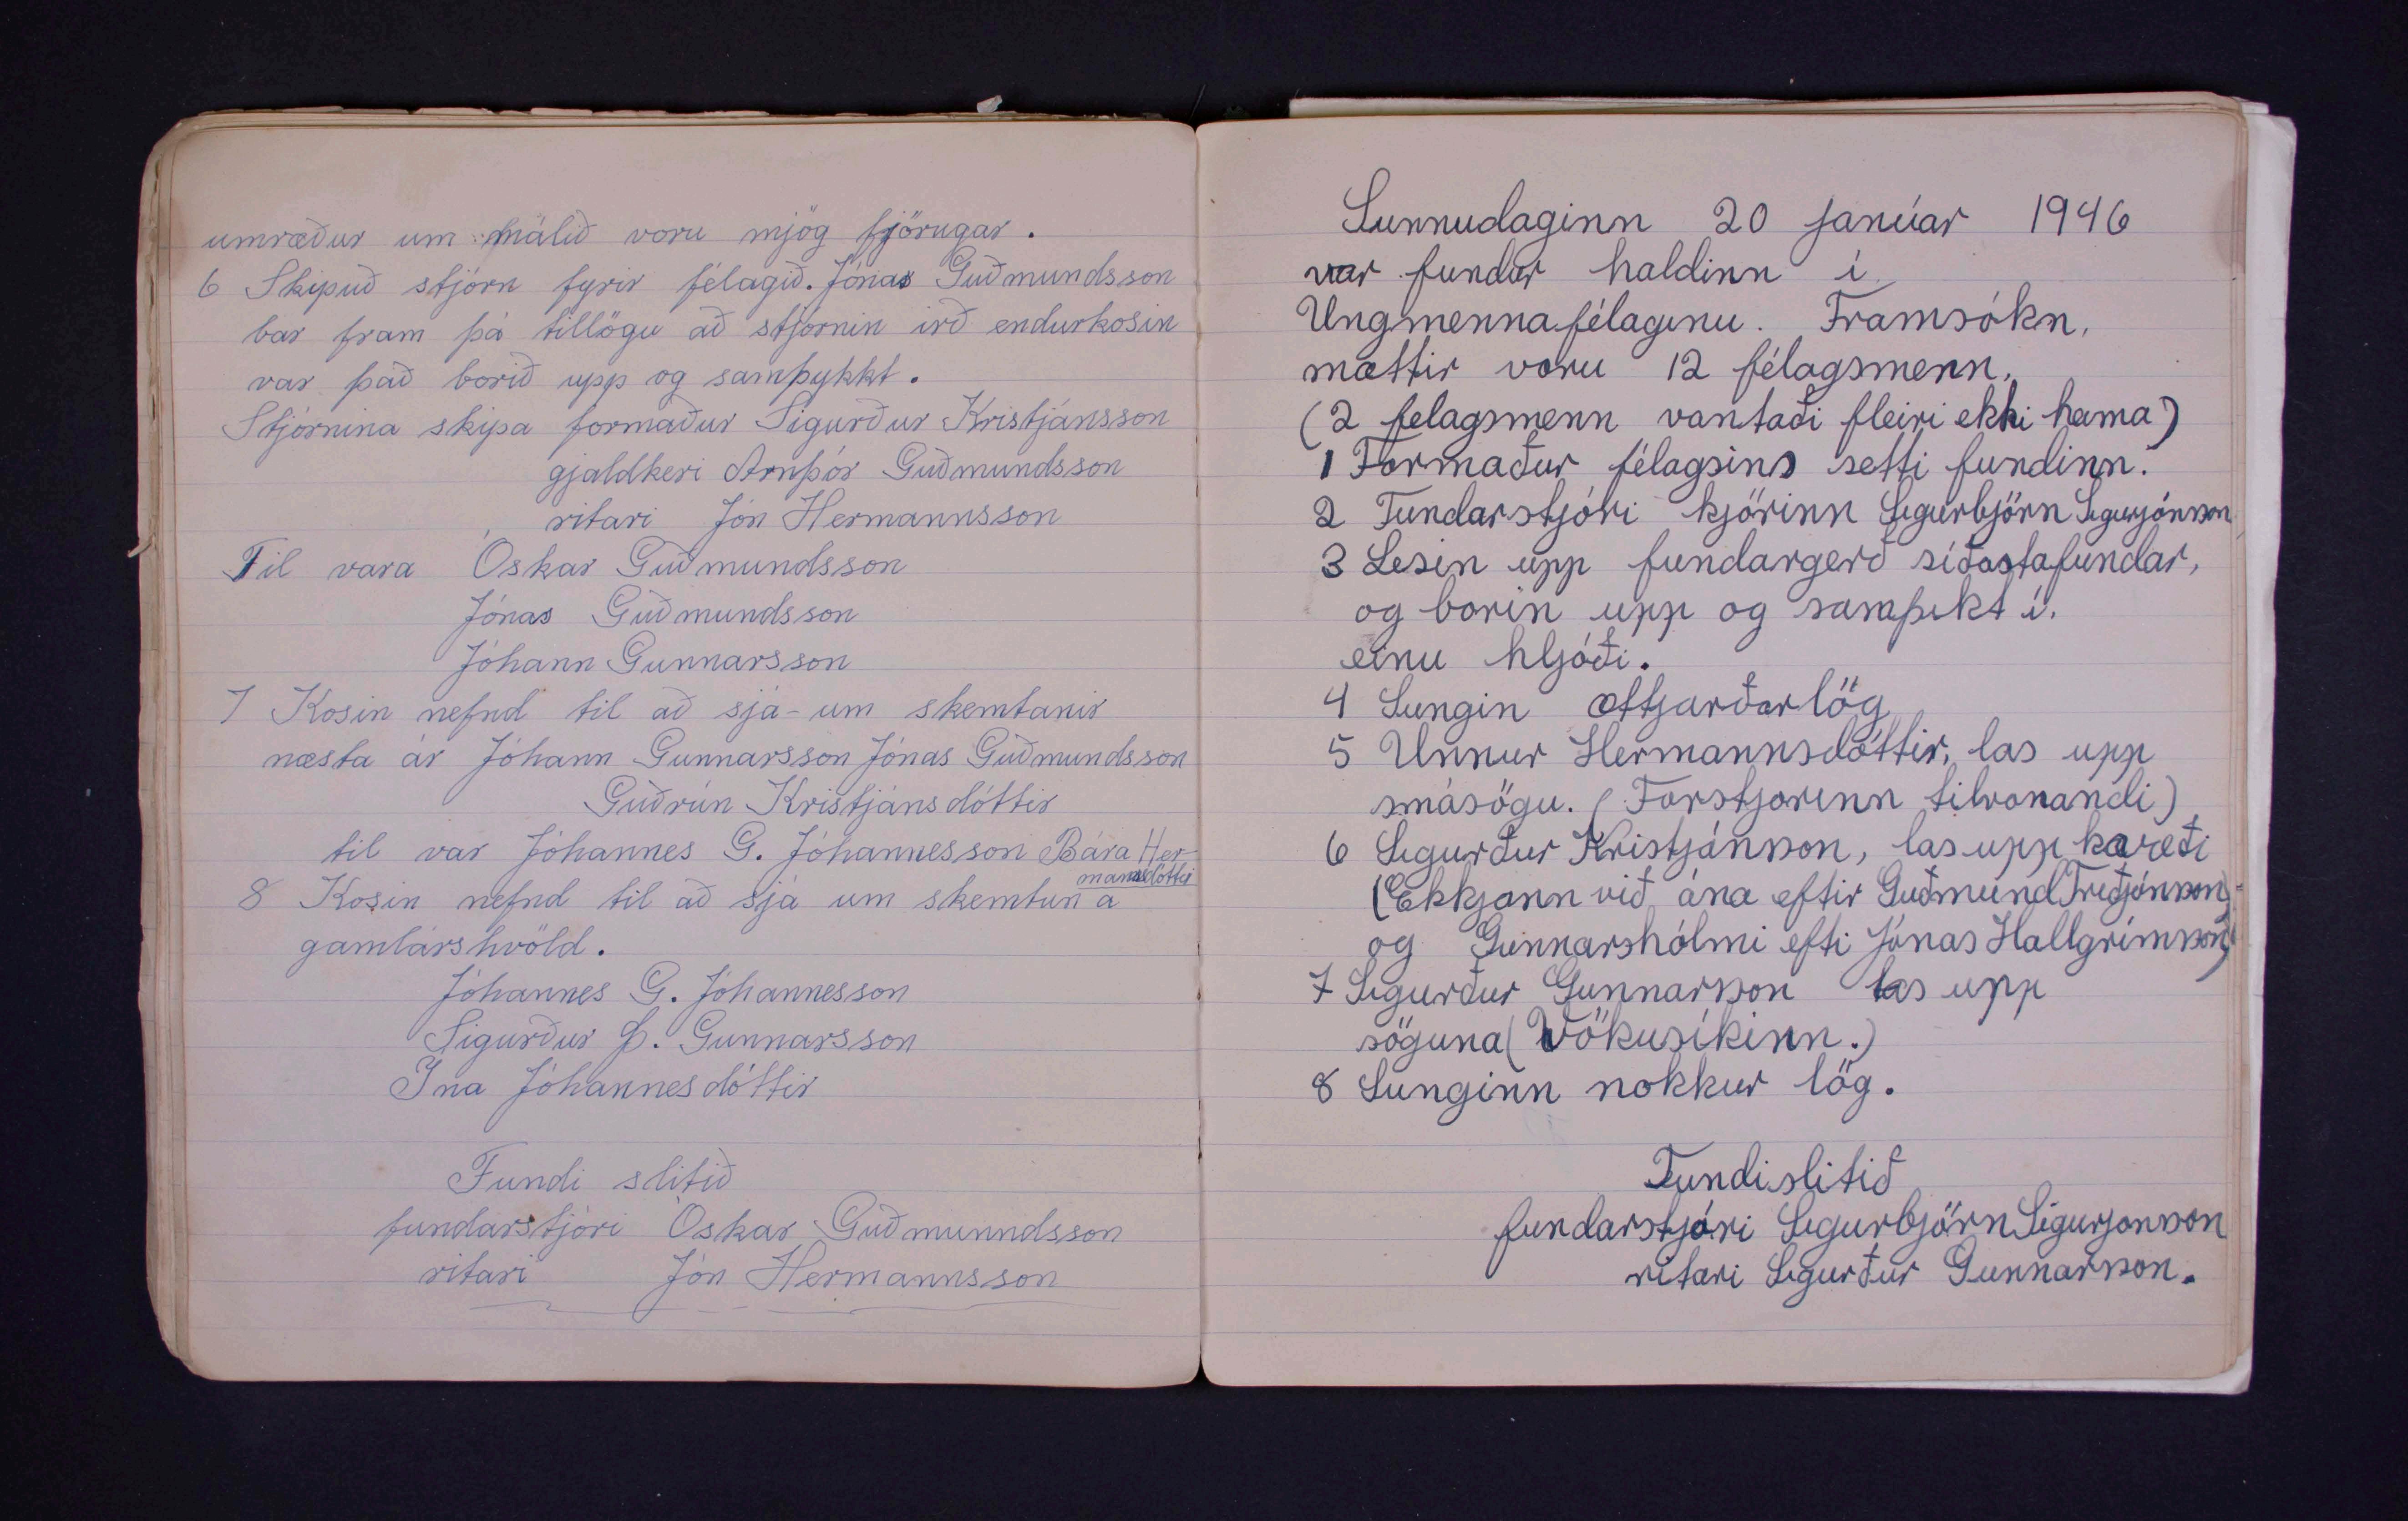 umræður um málið voru mjög fjörugar.
6 Skipuð stjórn fyrir félagið. Jónas Guðmundsson
bar fram þá tillögu að stjórnin irð endurkosin
var það borið upp og samþykkt.
Stjórnina skipa formaður Sigurður Kristjánsson
gjaldkeri Arnþór Guðmundsson
ritari Jón Hermannsson
Til vara Óskar Guðmundsson
Jónas Guðmundsson
Jóhann Gunnarsson
7 Kosin nefnd til að sjá-um skemtanir
næsta ár Jóhann Gunnarsson Jónas Guðmundsson
Guðrún Kristjánsdóttir
til var Jóhannes G. Jóhannesson Bára Her-
mannsdóttir
8 Kosin nefnd til að sjá um skemtun á
gamlárshvöld.
Jóhannes G. Jóhannesson
Sigurður Þ. Gunnarsson
Ina Jóhannesdóttir
Fundi slitið
fundarstjóri Óskar Guðmunndsson
ritari Jón Hermannsson
Sunnudaginn 20 janúar 1946
var fundur haldinn í
Ungmennafélaginu. Framsókn,
mættir voru 12 félagsmenn,
(2 felagsmenn vantaði fleiri ekki hama)
1 Formaður félagsins setti fundinn.
2 Fundarstjóri kjörinn Sigurbjörn Sigurjónsson
3 Lesin upp fundargerð síðastafundar,
og borin upp og samþikt í.
einu hljóði.
4 Sungin ættjarðarlög
5 Unnur Hermannsdóttir, las upp
smásögu. (Forstjorinn tilvonandi)
6 Sigurður Kristjánsson, las upp kavæði
(Ekkjann við ána eftir Guðmund Friðjónsson)
og Gunnarshólmi efti Jónas Hallgrímsson)
7 Sigurður Gunnarsson las upp
söguna (Vökusíkinn.)
8 Sunginn nokkur lög.
Fundislitið
fundarstjóri Sigurbjörn Sigurjonsson
ritari Sigurður Gunnarsson.